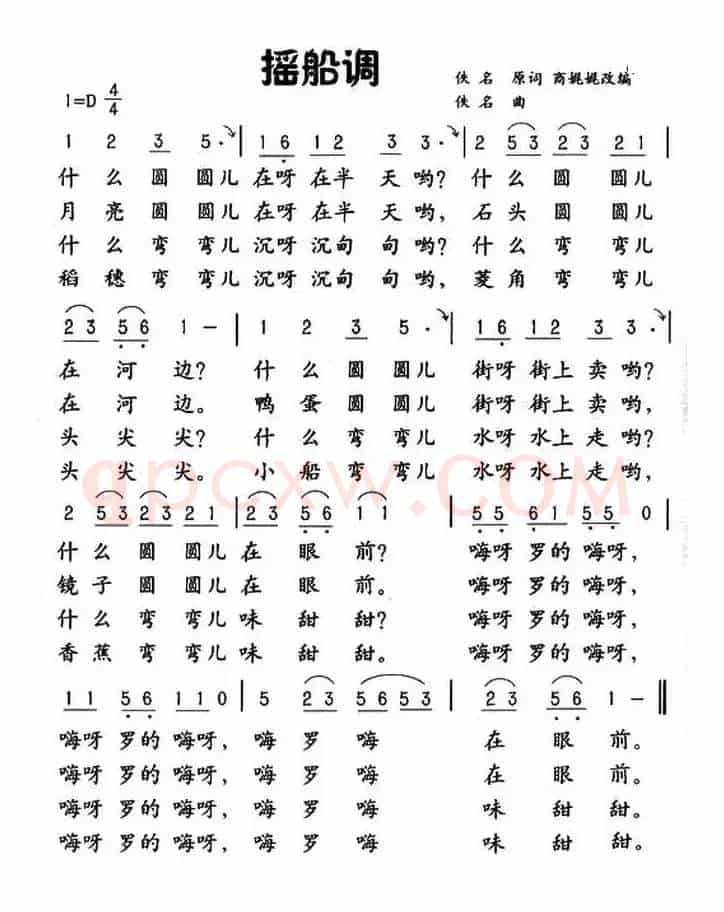 摇船调
佚名 原词 商娓娓改编
1=D 4/4
佚名 曲
1 2 3 5· | 1 6 1 2 3 3· | 2 5 3 2 3 2 1
什么圆圆儿在呀在半天哟？什么圆圆儿
月亮圆圆儿在呀在半天哟，石头圆圆儿
什么弯弯儿沉呀沉甸甸哟？什么弯弯儿
稻穗弯弯儿沉呀沉甸甸哟，菱角弯弯儿
2 3 5 6 1 － | 1 2 3 5· | 1 6 1 2 3 3· |
在河边？什么圆圆儿街呀街上卖哟？
在河边。鸭蛋圆圆儿街呀街上卖哟，
头尖尖？什么弯弯儿水呀水上走哟？
头尖尖。小船弯弯儿水呀水上走哟，
qpcxw.COM
2 5 3 2 3 2 1 | 2 3 5 6 1 1 | 5 5 6 1 5 5 0 |
什么圆圆儿在眼前？嗨呀罗的嗨呀，
镜子圆圆儿在眼前。嗨呀罗的嗨呀，
什么弯弯儿味甜甜？嗨呀罗的嗨呀，
香蕉弯弯儿味甜甜。嗨呀罗的嗨呀，
1 1 5 6 1 1 0 | 5 2 3 5 6 5 3 | 2 3 5 6 1 － ‖
嗨呀罗的嗨呀，嗨罗嗨在眼前。
嗨呀罗的嗨呀，嗨罗嗨在眼前。
嗨呀罗的嗨呀，嗨罗嗨味甜甜。
嗨呀罗的嗨呀，嗨罗嗨味甜甜。